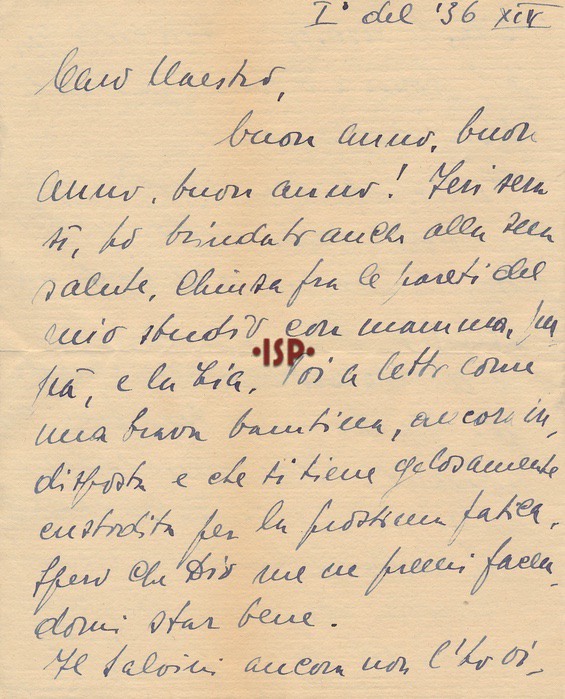 I° del '36 XIV
Caro Maestro,
buon anno, buon
anno, buon anno! Ieri sera
sì, ho brindato anche alla sua
salute, chiusa fra le pareti del
mio studio con mamma, pa-
•ISP•
pà, e la zia. Poi a letto come
una brava bambina, ancora in,
disposta e che si tiene gelosamente
custodita per la prossima fatica.
Spero che Dio me ne premi facen,
domi star bene.
Il Salvini ancora non l'ho vi-